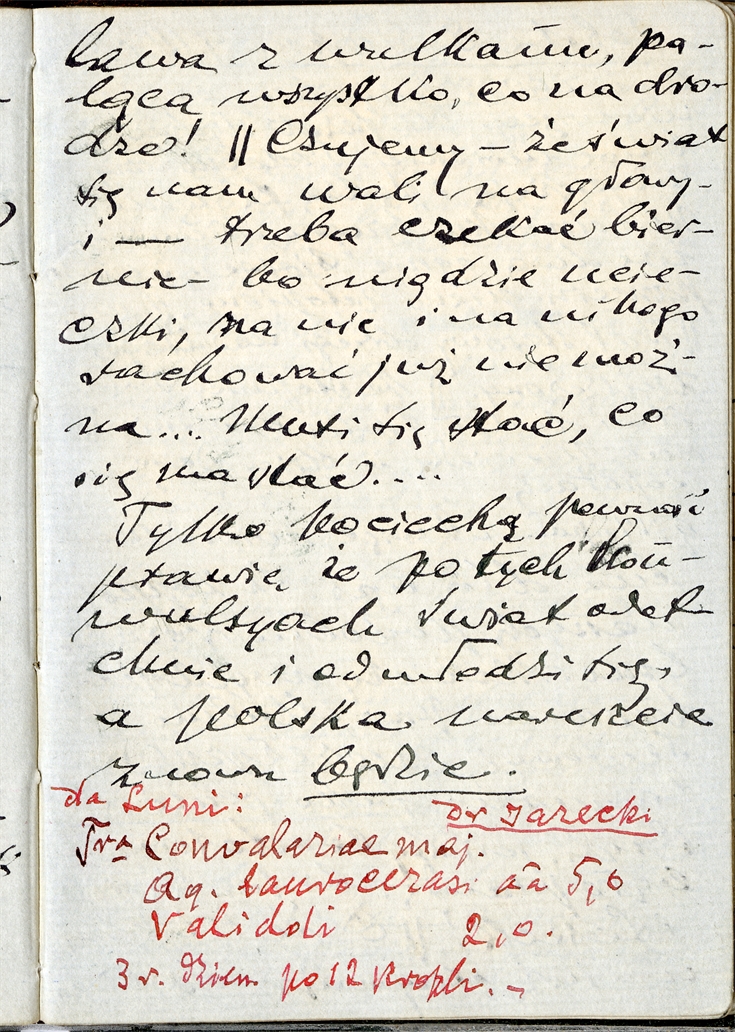 lawa z wulkanu, pa-
ląca wszystko, co na dro-
dze! || Czujemy – że świat
się nam wali na głowy –
i — trzeba czekać bier-
nie – bo nigdzie ucie-
czki, na nic i na nikogo
rachować już nie moż-
na.... Musi się stać, co
się ma stać....
Tylko pociechą pewność
prawie, że po tych kon-
wulsyach świat odet-
chnie i odmłodzi się,
a polska nareszcie
znowu będzie.
dla Luni: dr Jarecki
Tra Convalariae maj.
Aq. laurocerasi aa 5,0
Validoli 2,0.
3 r. dzien. po 12 kropli. –